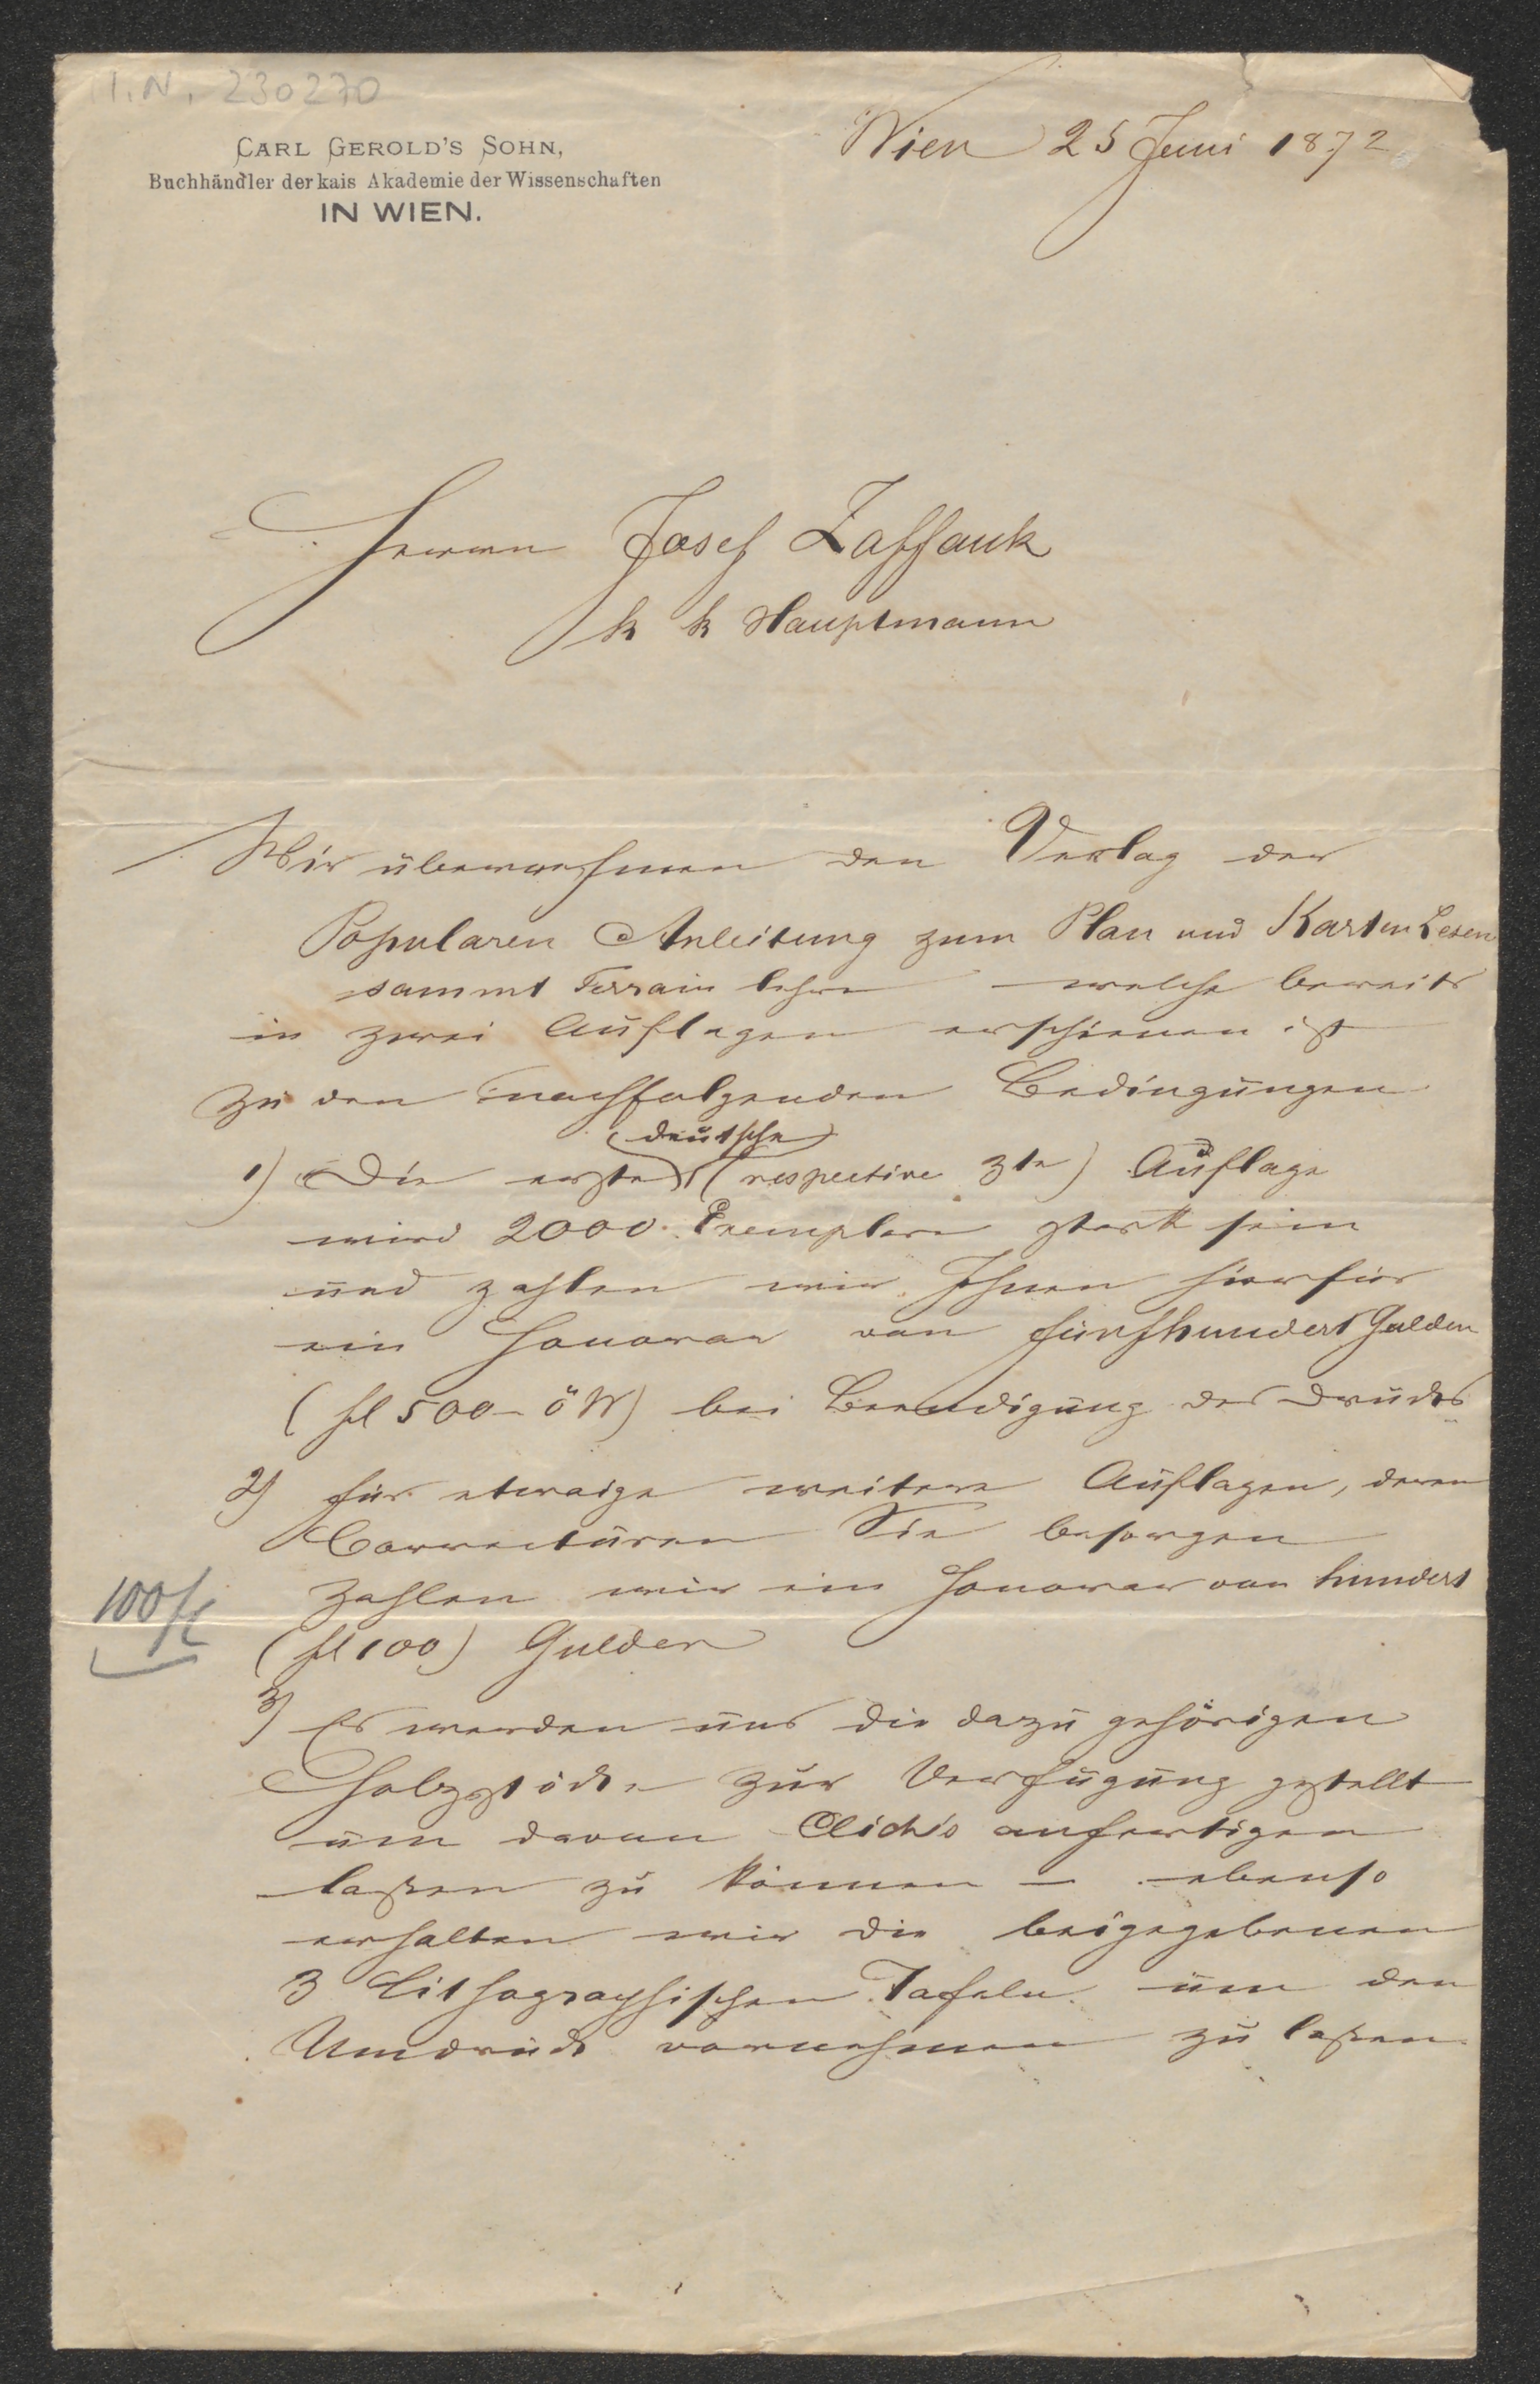 I.N. 230270
CARL GEROLD'S SOHN,
Buchhändler der kais Akademie der Wissenschaften
IN WIEN.
Wien 25 Juni 1872
Herrn Josef Zaffauk
k k Hauptmann
Wir übernehmen den Verlag der
Popularen Anleitung zum Plan und Karten Lesen
sammt Terrain lehre welche bereits
in zwei Auflagen erschienen ist
zu den nachfolgenden Bedingungen
(deutsche)
1) Die erste (respective 3te) Auflage
wird 2000 Exemplare stark sein
und zahlen wir Ihnen hierfür
ein Honorar von fünfhundert Gulden
(fl 500 – ö W) bei Beendigung des Druckes
2) für etwaige weitere Auflagen, deren
Correcturen Sie besorgen
zahlen wir ein Honorar von hundert
100 fl
(fl 100) Gulden
3) Es werden uns die dazu gehörigen
Holzstöcke zur Verfügung gestellt
um davon Clichés anfertigen
laßen zu können – ebenso
erhalten wir die beigegebenen
3 Lithographischen Tafeln um den
Umdruck vornehmen zu laßen